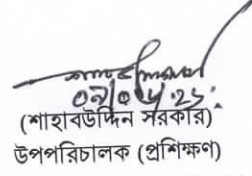 ০৯/০৫.২১
(শাহাবউদ্দিন সরকার)
উপপরিচালক (প্রশিক্ষণ)